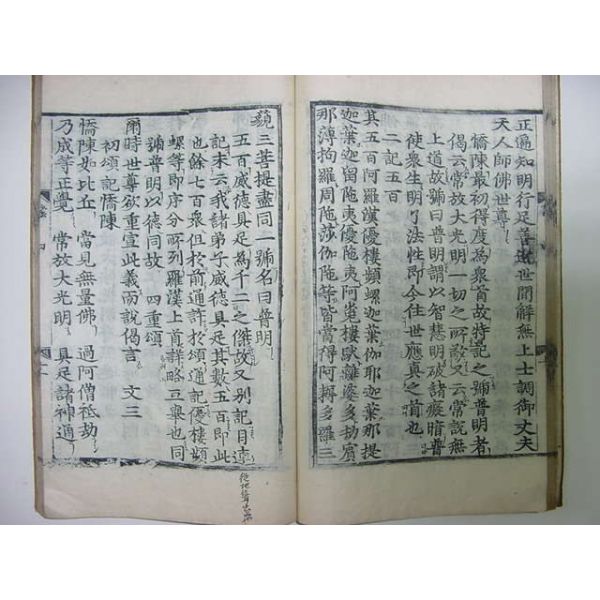 正遍知明行足善逝世間解無上士調御丈夫
天人師佛世尊
憍陳最初得度為衆首故特記之號普明者
偈云常放大光明一切之所敬又云常說無
上道故號曰普明謂以智慧明破諸癡暗普
使衆生明了法性即今住世應真之首也
二記五百
其五百阿羅漢優樓頻螺迦葉伽耶迦葉那提
迦葉迦留陁夷優陁夷阿㝹樓馱離婆多劫賔
那薄拘羅周陁莎伽陁等皆當得阿耨多羅三
藐三菩提盡同一號名曰普明
五百威德具足為千二之傑故又別記目連
記末云我諸弟子威德具足其數五百即此
也餘七百衆但於前通許於頌通記優樓頻
螺等即序分所列羅漢上首詳略互舉也同
號普明以德同故 四重頌
爾時世尊欲重宣此義而說偈言 文三
初頌記憍陳
憍陳如比丘 當見無量佛 過阿僧祇劫
乃成等正覺 常放大光明 具足諸神通